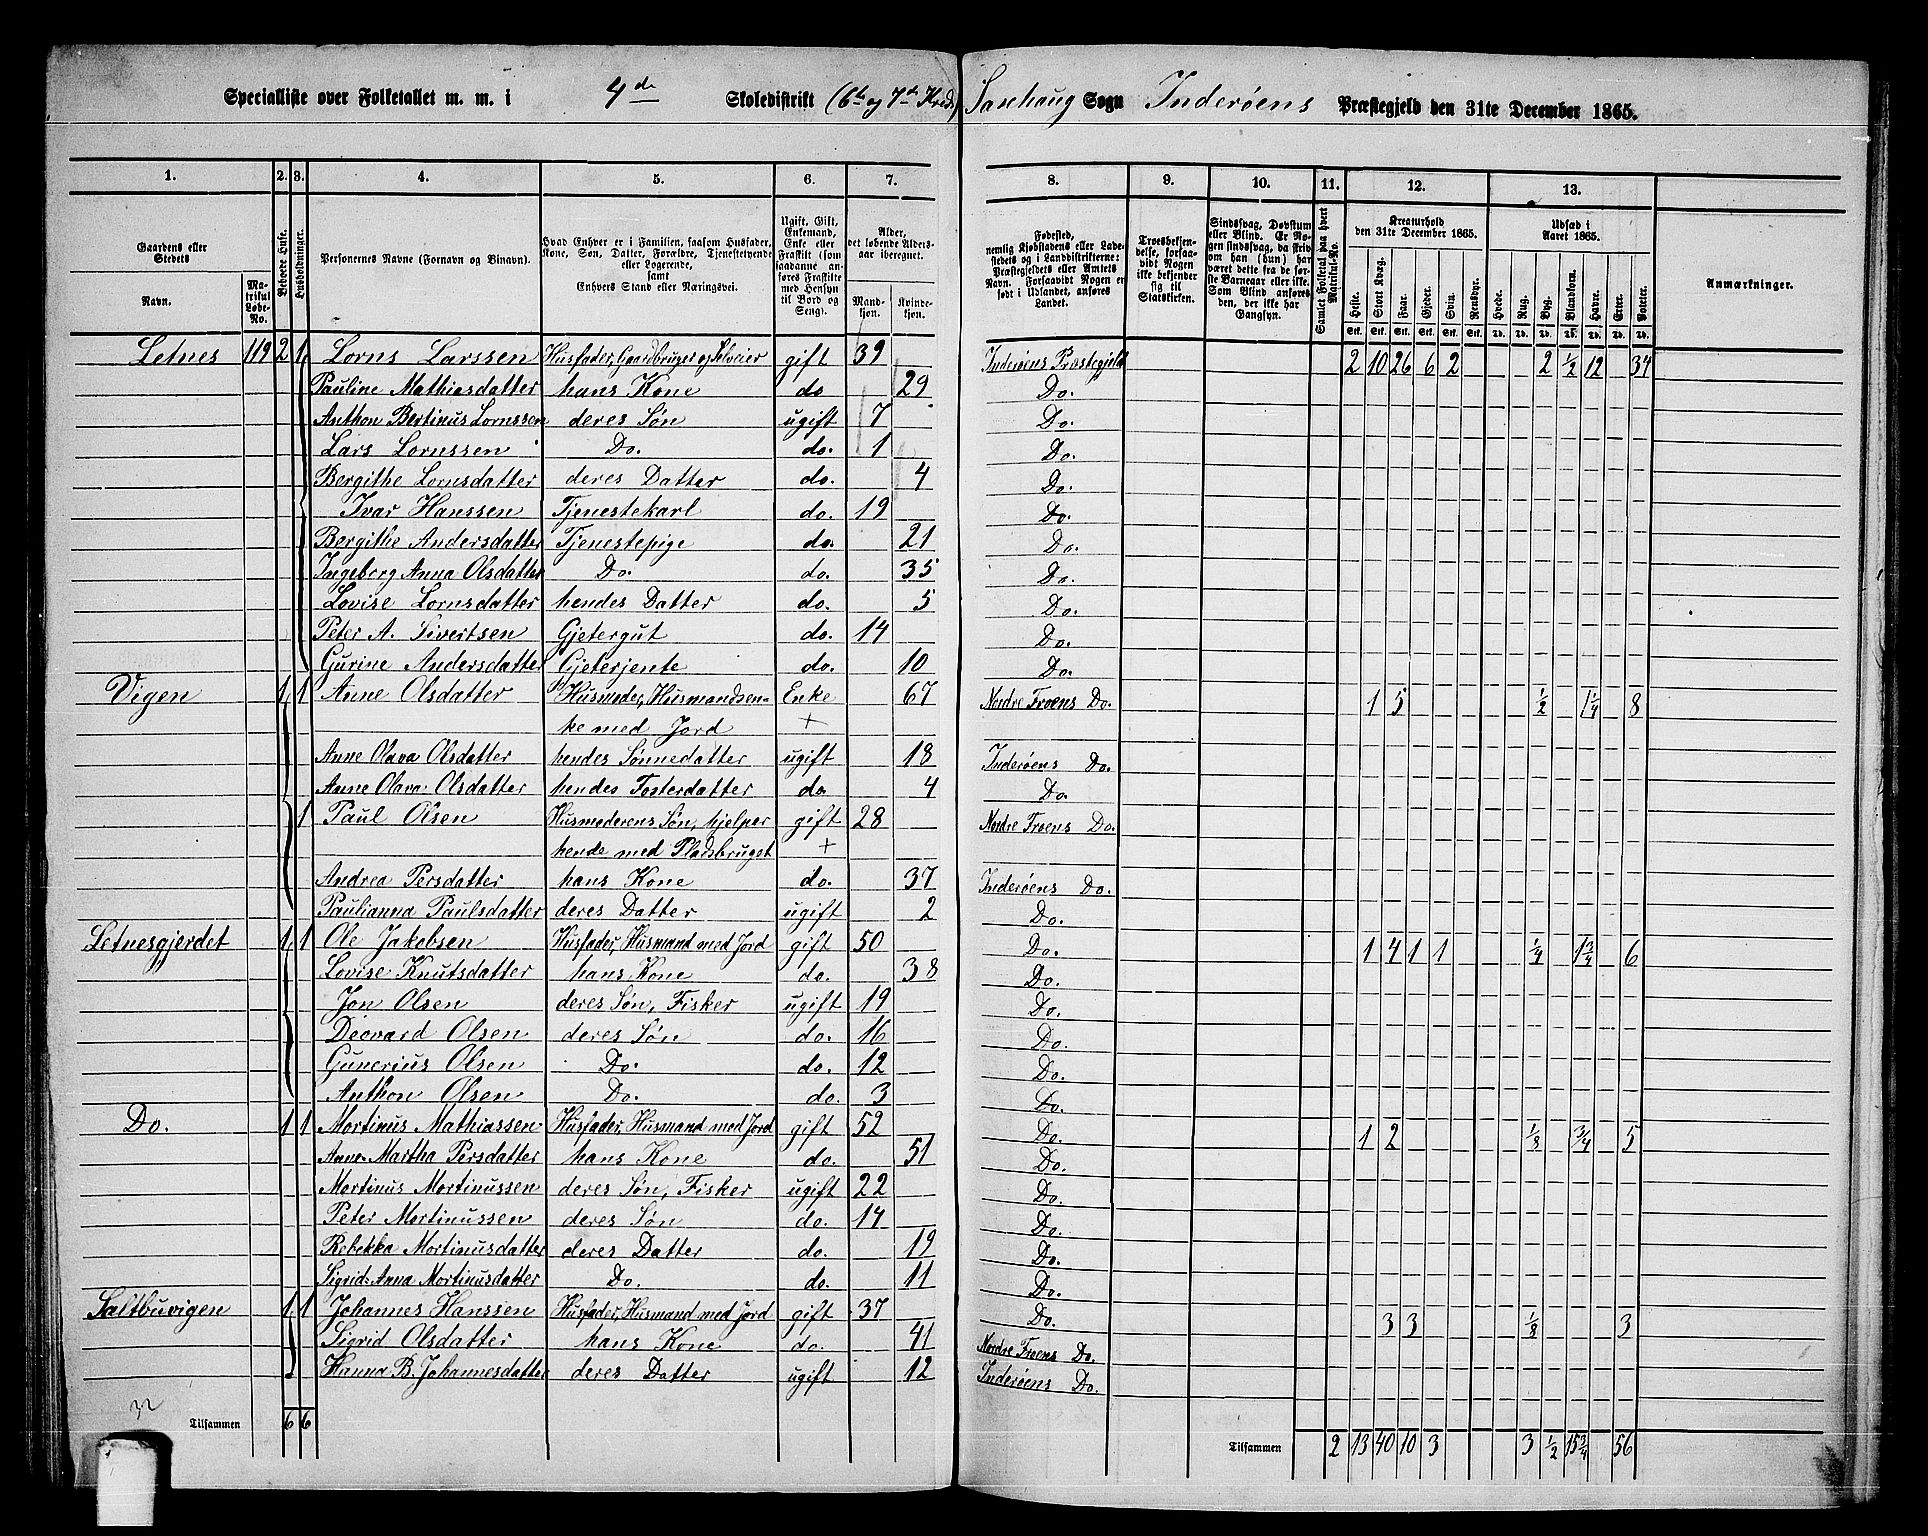 Specialliste over Folketallet m. m. i 4de Skoledistrikt (6te og 7de Kreds) Saxhaug Sogn Inderøens Præstegjeld den 31te December 1865.
1. 2. 3. 4. 5. 6. 7. 8. 9. 10. 11. 12. 13.
Gaardens eller Stedets
Navn.
Matrikul Løbe-No.
Beboede Huse.
Husholdninger.
Personernes Navne (Fornavn og Binavn).
Hvad Enhver er i Familien, saasom Husfader, Kone, Søn, Datter, Forældre, Tjenestetyende eller Logerende, samt Enhvers Stand eller Næringsvei.
Ugift, Gift, Enkemand, Enke eller Fraskilt (som saadanne anføres Fraskilte med Hensyn til Bord og Seng).
Alder, det løbende Aldersaar iberegnet.
Mandkjøn. Kvindekjøn.
Fødested, nemlig Kjøbstadens eller Ladestedets og i Landdistrikterne: Præstegjeldets eller Amtets Navn. Forsaavidt Nogen er født i Udlandet, anføres Landet.
Troesbekjendelse, forsaavidt Nogen ikke bekjender sig til Statskirken.
Sindssvag, Døvstum eller Blind. Er Nogen sindssvag, da Privom han (hun) har været dette fra de første Barneaar eller ikke. Som Blind anføres den, der ikke har Gangsyn.
Samlet Folketal paa hvert Matrikul-No.
Kreaturhold den 31te December 1865.
Heste. Stort Kvæg. Faar. Gjeder. Svin. Rensdyr.
Stk. Stk. Stk. Stk. Stk. Stk.
Udsæd i Aaret 1865.
Hvede. Rug. Byg. Blandkorn. Havre. Erter. Poteter.
Td. Td. Td. Td. Td. Td. Td.
Anmærkninger.
Letnes 119 2 1 Lorns Larssen Husfader, Gaardbruger og Selveier gift 39 Inderøens Præstegjeld 2 10 26 6 2 2 1/2 12 34
Pauline Mathiasdatter hans Kone do 29 Do.
Anthon Bertinus Lornssen deres Søn ugift 7 Do.
Lars Lornssen Do. do. 1 Do.
Bergithe Lornsdatter deres Datter do. 4 Do.
Ivar Hanssen Tjenestekarl do. 19 Do.
Bergithe Andersdatter Tjenestepige do. 21 Do.
Ingeborg Anna Olsdatter Do. do. 35 Do.
Lovise Lornsdatter hendes Datter do. 5 Do.
Peter A. Sivertsen Gjetergut do. 14 Do.
Gurine Andersdatter Gjeterjente do. 10 Do.
Vigen 1 1 Anne Olsdatter Husmoder, Husmandsen- Enke 67 Nordre Froens Do. 1 5 1/2 1 1/4 8
ke med Jord +
Anne Olava Olsdatter hendes Sønnedatter ugift 18 Inderøens Do.
Anne Olava Olsdatter hendes Fosterdatter do. 4 Do.
1 Paul Olsen Husmoderens Søn, hjelper gift 28 Nordre Froens Do.
hende med Pladsbruget +
Andrea Persdatter hans Kone do. 37 Inderøens Do.
Paulianna Paulsdatter deres Datter ugift 2 Do.
Letnesgjerdet 1 1 Ole Jakobsen Husfader, Husmand med Jord gift 50 Do. 1 4 1 1 1/4 1 3/4 6
Lovise Knutsdatter hans Kone do. 38 Do.
Jon Olsen deres Søn, Fisker ugift 19 Do.
Deovard Olsen deres Søn do. 16 Do.
Gunerius Olsen Do. do. 12 Do.
Anthon Olsen Do. do. 3 Do.
Do. 1 1 Mortinus Mathiassen Husfader, Husmand med Jord gift 52 Do. 1 2 1/8 3/4 5
Anne Martha Persdatter hans Kone do. 51 Do.
Mortinus Mortinussen deres Søn, Fisker ugift 22 Do.
Peter Mortinussen deres Søn do. 14 Do.
Rebekka Mortinusdatter deres Datter do. 19 Do.
Sigrid Anna Mortinusdatter Do. do. 11 Do.
Saltbuvigen 1 1 Johannes Hanssen Husfader, Husmand med Jord gift 37 Do. 3 3 1/8 3
Sigrid Olsdatter hans Kone do. 41 Nordre Froens Do.
Hanna B. Johannesdatter deres Datter ugift 12 Inderøens Do.
32
Tilsammen 6 6 Tilsammen 2 13 40 10 3 3 1/2 15 3/4 56